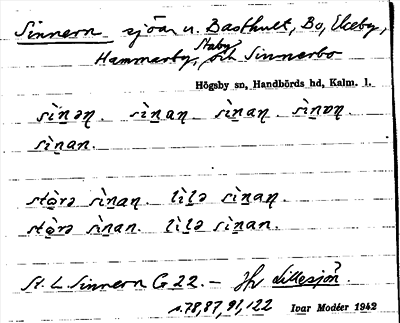 Sinnern sjön u. Basthult, Bo, Ekeby,
Staby
Hammarby, och Sinnerbo
Högsby sn, Handbörds hd, Kalm. l.
sìnəɳ. sìnaɳ. sìnan. sìnɒɳ.
sìnan.
stò̤rə sìnaɳ. lìlə sìnaɳ.
stò̤rə sìnan. lìlə sìnan.
St. L. Sinnern G 22. – Jfr Lillesjön?
1.78,87,91,122 Ivar Modéer 1942